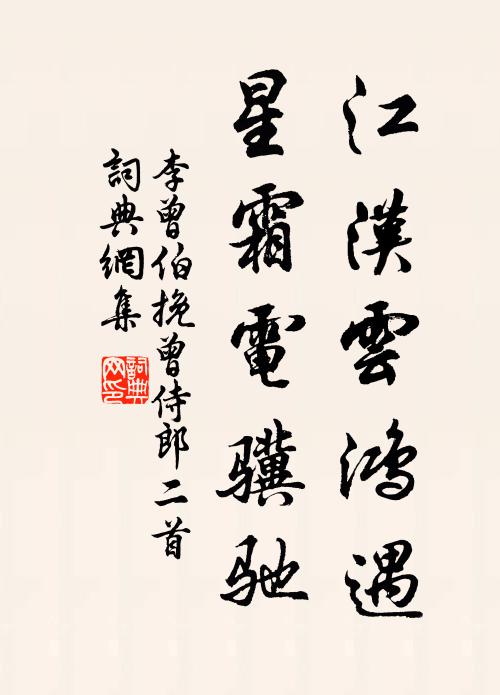 江漢雲鴻遇
星霜電驥馳
李曾伯挽曾侍郎二首
詞典網集
詞典網印